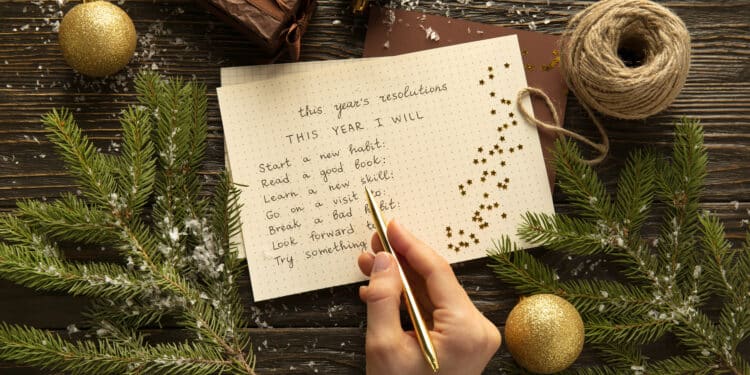 this year's resolutions
THIS YEAR I WILL
Start a new habit:
Read a good book:
Learn a new skill:
Go on a visit to:
Break a Bad habit:
Look forward to
Try something